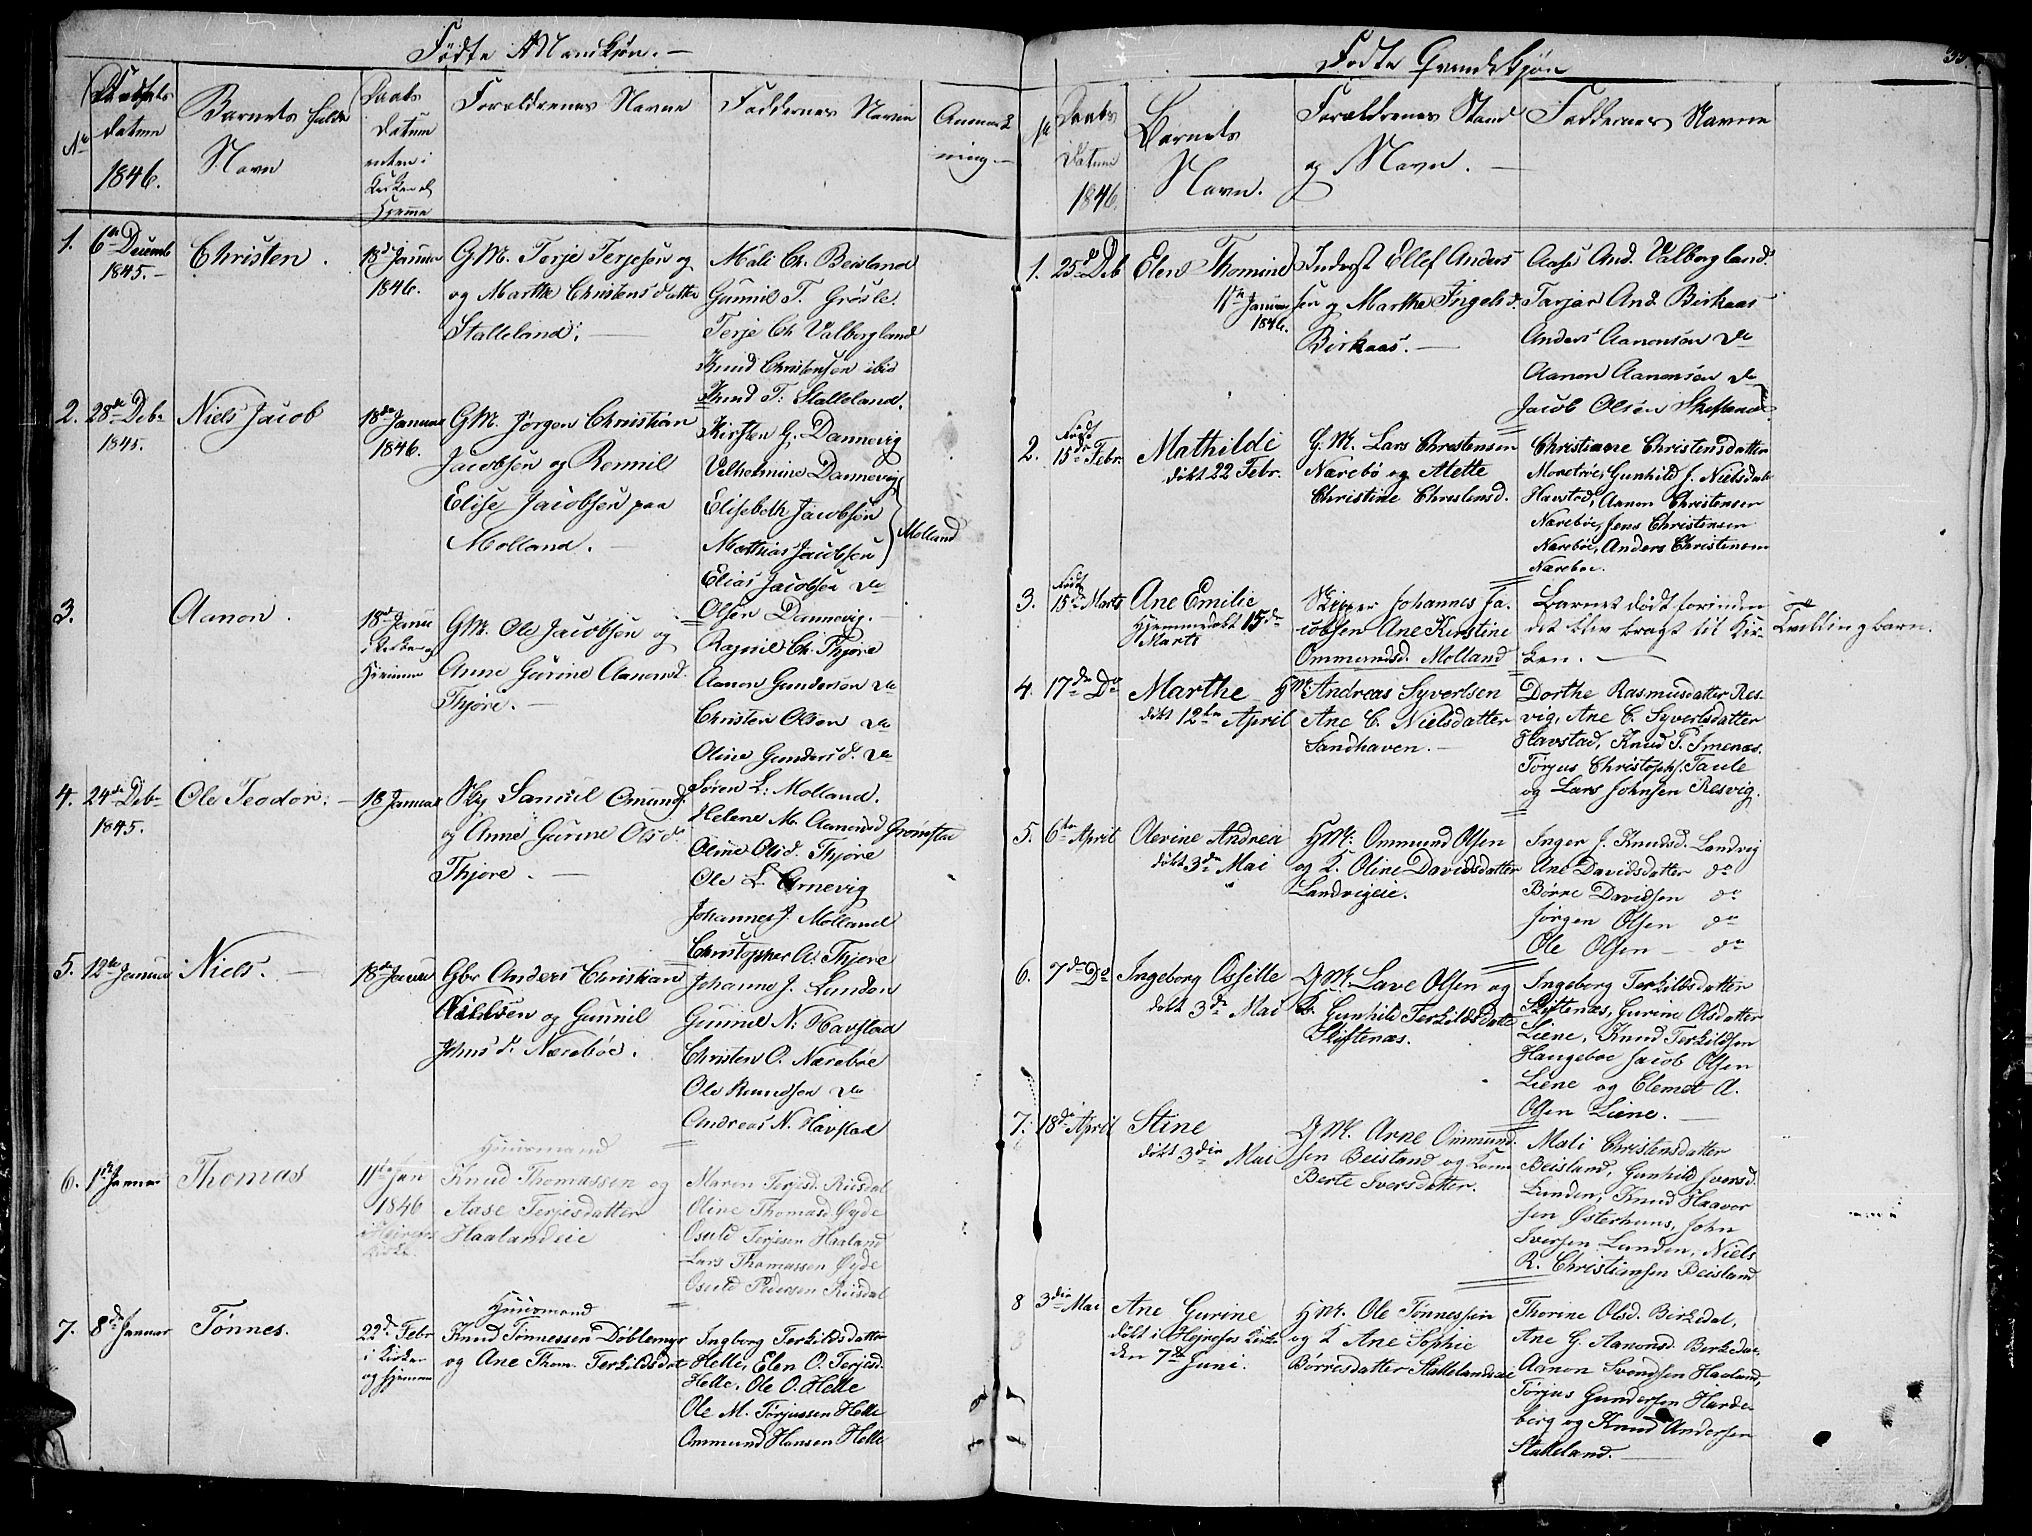 Fødte Mandkjøn. —
No
Datum
1846.
Barnets fulde
Navn
Daabs
Datum
enten i
Kirken el
Hjemme
Forældrenes Navne
Faddernes Navne
Anmærk
ning. —
1.
6te Decemb
1845. —
Christen.
18d Januar
1846.
GM. Terje Terjesen og
og Marthe Christens datter
Stalleland. —
Mali Ch. Beisland
Gunnil T. Grøsle
Terje Ch Valborgland
Knud Christensen ibid
Knud T. Stalleland.
2.
28de Debr
1845.
Niels Jacob
18de Januar
1846.
GM. Jørgen Christian
Jacobsen og Rennil
Elise Jacobsen paa
Molland. —
Kirsten G. Dannevig
Vilhelmine Dannevig
Elisebeth Jacobsen
Mathias Jacobsen
Elias Jacobsen do
Molland
3.
Aanon.
18de Janu
i Kirken og
Hjemme
GM. Ole Jacobsen og
Anne Gurine Aanonsd.
Thjøre. —
Olsen Dannevig. —
Ragnil Ch. Thjøre
Aanon Gundersen do
Christen Olsen do
Oline Gundersd. do
4.
24de Debr
1845.
Ole Teodor. —
18 Januar
Skp Samuel Omunds.
og Anne Gurine Olsd.
Thjøre. —
Søren L. Molland.
Helene M. Aanonsd Grømstad
Oline Olsd. Thjøre
Ole L. Arnevig
Johannes J. Molland
Christopher A. Thjøre
5.
12te Januar
Niels. —
18de Januar
Gbr Anders Christian
Nielsen og Gunnil
Johns d. Nærebøe.
Johanne J. Lunden
Gunnil N. Havstad
Christen O. Nærebøe
Ole Knudsen do
Andreas N. Havstad
6.
1ste Januar
Thomas
11te Jan
1846
i Heirefos
Kirke
Huusmand
Knud Thomassen og
Aase Terjesdatter
Haalandeie
Maren Terjesd. Riisdal
Oline Thomasd. Øyde
Osuld Terjesen Haaland
Lars Thomassen Øyde
Osuld Pedersen Riisdal
7.
8de Januar
Tønnes.
22de Febr
i Kirken
og Hjemme
Huusmand
Knud Tønnessen Døblemyr
og Ane Thom. Terkildsdat
Ingborg Terkildsdatter
Helle, Elen O. Terjesd.
Helle, Ole O. Helle
Ole M. Torjussen Helle
Ommund Hansen Helle
Fødte Qvindekjøn
No
Daabs
Datum
1846.
Barnets
Navn.
Forældrenes Stand
og Navn. —
Faddernes Navne
1.
25de Deb
Elen Thomine
11te Januar
1846.
Inderst Ellef Anders
sen og Marthe Ingelsd.
Birkaas. —
Aase And. Valborgland.
Tarjer And. Birkaas
Anders Aanonsen do
Aanon Aanonsen do
Jacob Olsen Skiftenæs
2.
Født
15de Febr.
Mathilde
døbt 22 Febr.
G. M. Lars Christensen
Nærebø og Mette
Christine Christensd.
Christiane Christensdatter
Moretrøe, Gunhild J. Nielsdatt
Havstad, Aanon Christensen
Nærebøe, Jens Christensen
Nærebøe, Anders Christensen
Nærebøe.
3.
Født
15de Marts
Ane Emilie
Hjemmedøbt 15de
Marts
Skipper Johannes Ja-
cobsen Ane Kirstine
Ommundsd. Molland
Barnet dødt forinden
det blev bragt til Kir-
ken. —
Tvillingbarn.
4.
17de Do
Marthe
døbt 12te April
GM. Andreas Syvertsen
Ane C. Nielsdatter
Sandhaven. —
Dorthe Rasmusdatter Res-
vig, Ane C. Syvertsdatter
Havstad, Knud P. Smenæs.
Tørjus Christophs. Taule
og Lars Johnsen Resvig.
5.
6te April
Olevine Andrea
døbt 3de Mai
HM: Ommund Olsen
og K. Oline Davidsdatter
Landvigeie.
Inger J. Knudsd. Landvig
Ane Davidsdatter do
Børre Davidsen do
Jørgen Olsen do
Ole Olsen — do
6.
7de Do
Ingeborg Ossille
døbt 3de Mai
GM. Lave Olsen og
K. Gunhild Terkildsdatt
Skiftenæs.
Ingeborg Terkildsdatter
Skiftenæs, Gurine Olsdatter
Liene, Knud Terkildsen
Haugeboe Jacob Olsen
Liene og Clemet A.
Olsen Liene. —
7.
18de April
Stine
døbt 3die Mai
GM. Arne Ommund
sen Beisland og Kone
Berte Iversdatter.
Mali Christensdatter
Beisland, Gunhild Iversd.
Lunden, Knud Haavor
sen Østerhuus, John
Iversen Lunden, Niels
R. Christiansen Beisland
8
3die Mai
Ane Gurine
døbt i Hejrefos Kirke
den 7de Juni.
HM. Ole Tønnessen
og K Ane Sophie
Børresdatter Stallelandseie
Thorine Olsd. Birkedal,
Ane G. Aanonsd. Birkedal
Aanon Svendsen Haaland,
Tørjus Gundersen Harde-
berg og Knud Andersen
Stalleland. —